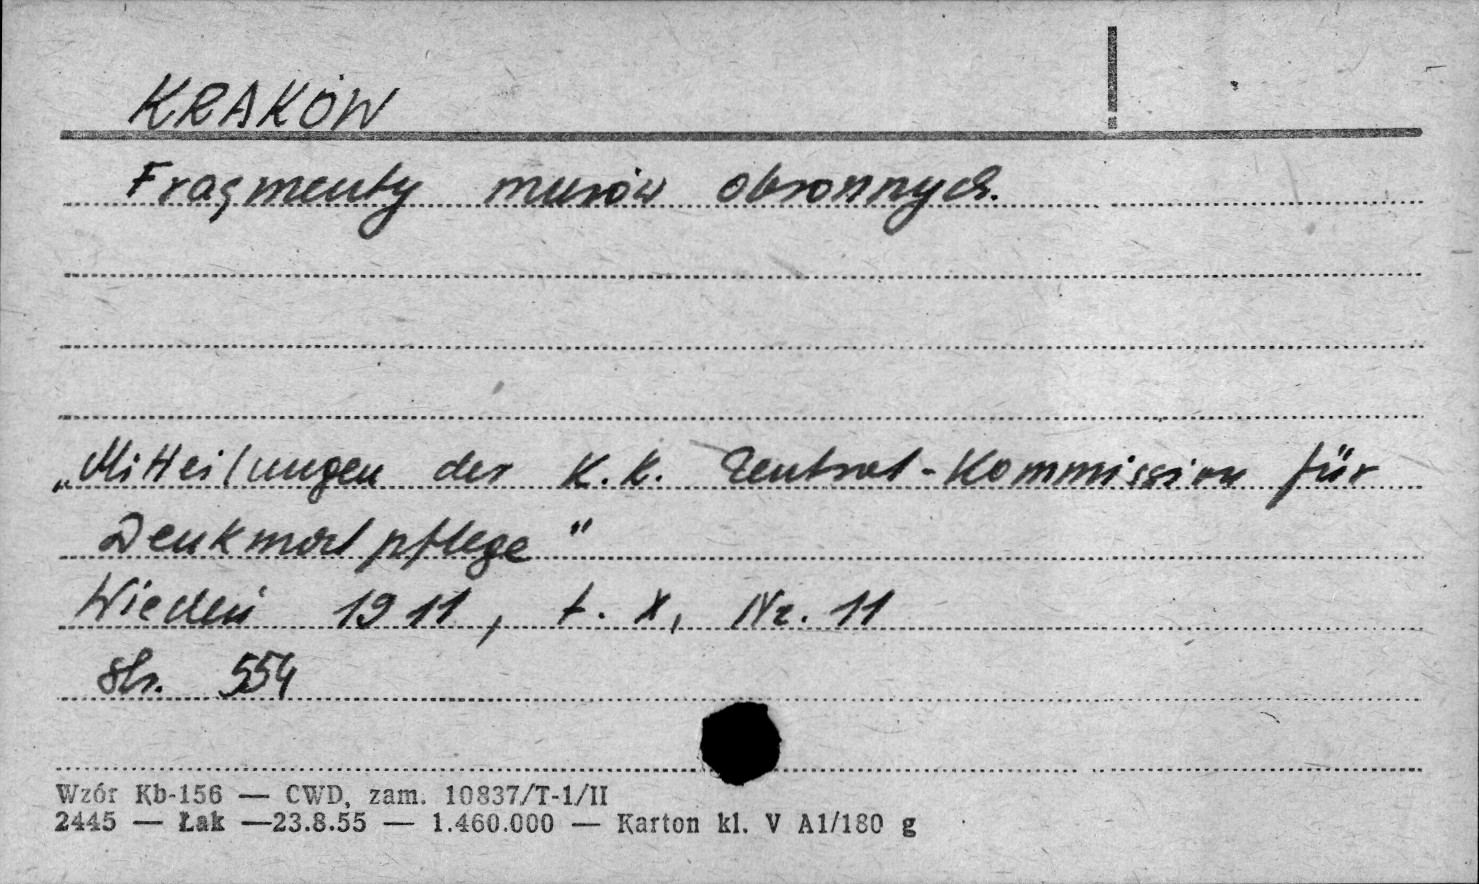 KRAKÓW
Fragmenty murów obronnych.
„Mitteilungen der K.K. Zentral-Kommission für
Denkmalpflege"
Wiedeń 1911, t. X, Nr. 11
str. 554
Wzór Kb-156 — CWD, zam. 10837/T-1/II
2445 — Łak —23.8.55 — 1.460.000 — Karton kl. V A1/180 g